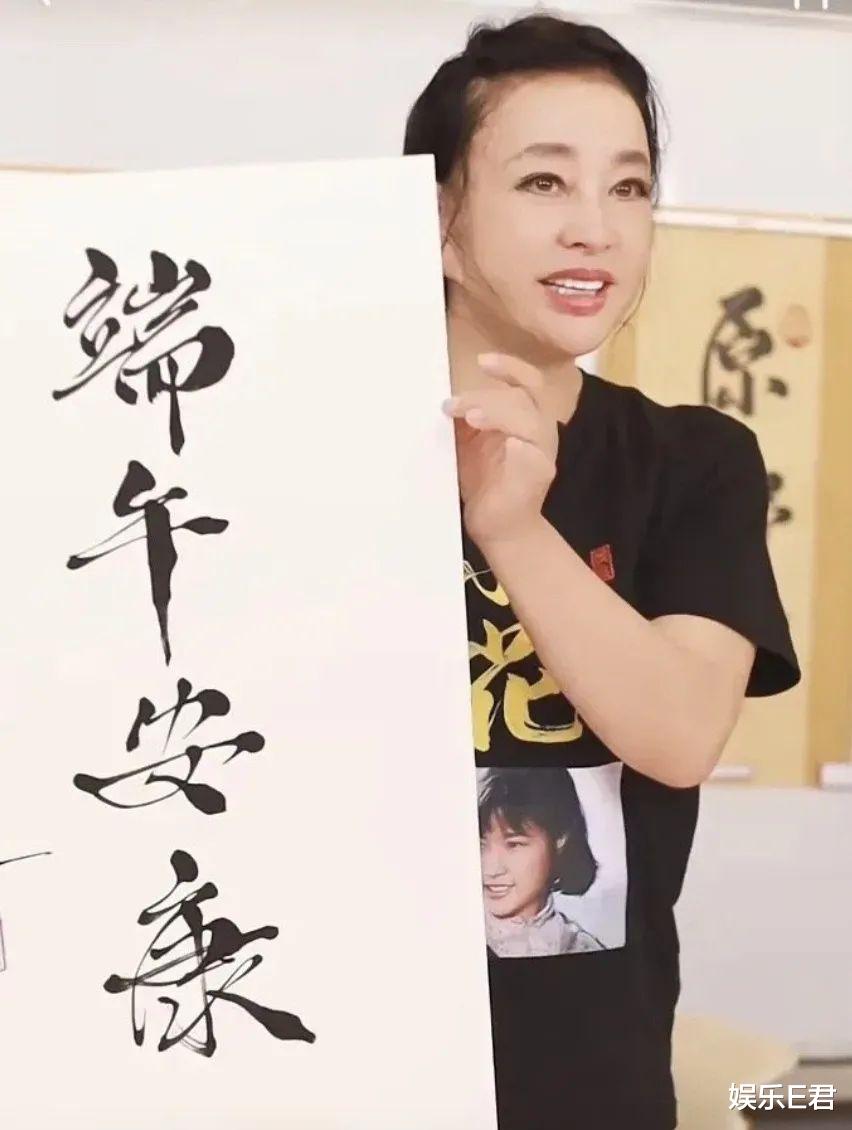 端午安康
原
花
娱乐E君